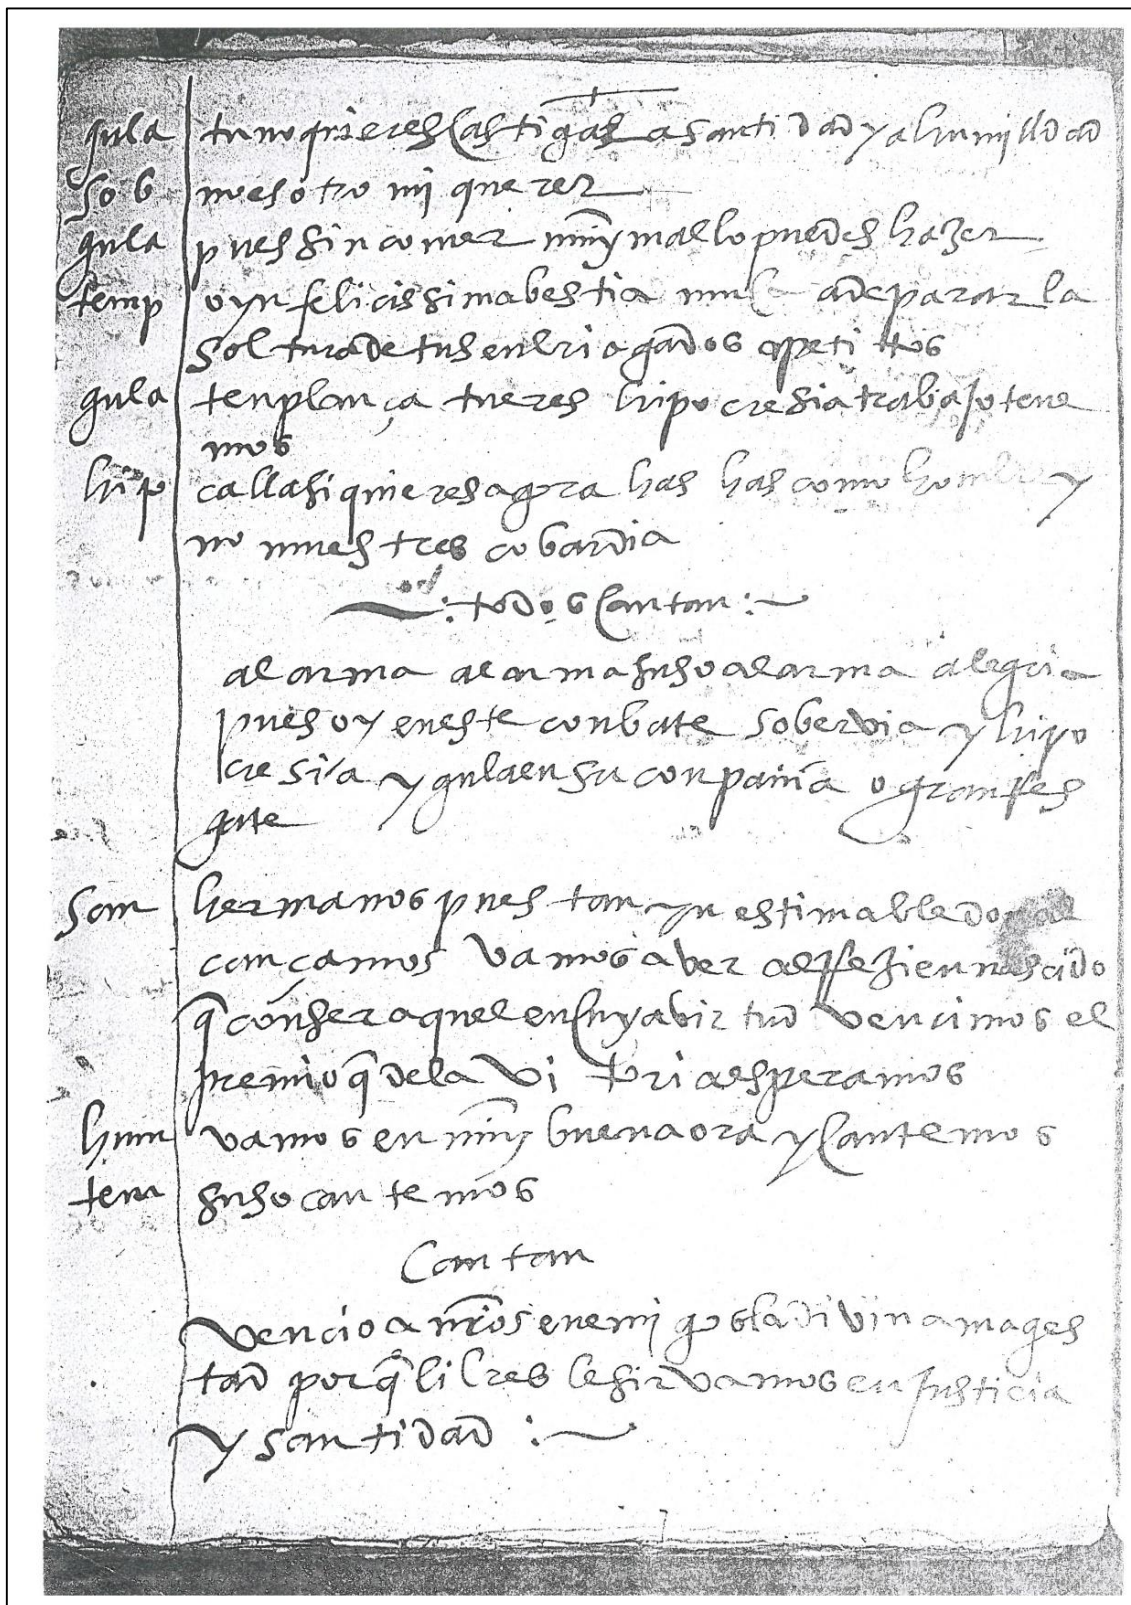 gula tu no quieres castigar a santidad y a humilldad
sob no es otro mi querer
gula pues sin comer muy mal lo puedes hazer
temp o ynfelicissima bestia a de parar la
soltura de tus enbriagados apetittos
gula tenplança tu eres hipocresia trabajo tene
mos
hipo calla si quieres agora has has como hombre y
no muestres cobardia
~: todos cantan :~
al arma al arma suso al arma alegria
pues oy en este conbate sobervia y hipo
cresia y gula en su conpañia o gran
gate
san hermanos pues tan ynestimable don al
cançamos vamos a ver al rrezien nascido
q̃ con ser aquel en cuya virtud vencimos el
premio q̃ de la vitoria esperamos
hum vamos en muy buena ora y cantemos
tem suso cantemos
Cantan
Vencio a nr̃os enemigos la divina mages
tad porq̃ libres le sirvamos en justicia
y santidad :~